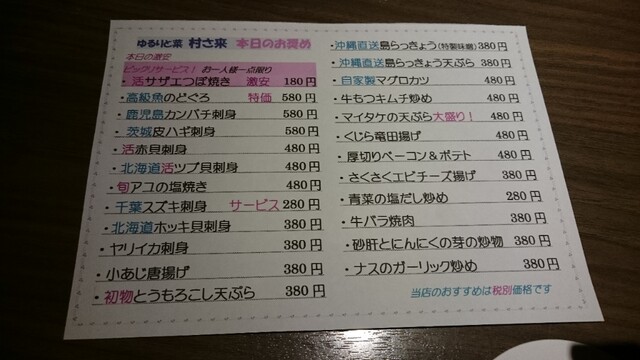 ゆるりと菜 村さ来 本日のお奨め
本日の激安
ビックリサービス! お一人様一点限り
・活サザエつぼ焼き 激安 180円
・高級魚のどぐろ 特価 580円
・鹿児島カンパチ刺身 580円
・茨城皮ハギ刺身 580円
・活赤貝刺身 480円
・北海道活ツブ貝刺身 480円
・旬アユの塩焼き 480円
・千葉スズキ刺身 サービス280円
・北海道ホッキ貝刺身 380円
・ヤリイカ刺身 380円
・小あじ唐揚げ 380円
・初物とうもろこし天ぷら 380円
・沖縄直送島らっきょう(特製味噌)380円
・沖縄直送島らっきょう天ぷら 380円
・自家製マグロカツ 480円
・牛もつキムチ炒め 480円
・マイタケの天ぷら大盛り! 480円
・くじら竜田揚げ 480円
・厚切りベーコン&ポテト 480円
・さくさくエビチーズ揚げ 380円
・青菜の塩だし炒め 280円
・牛バラ焼肉 380円
・砂肝とにんにくの芽の炒物 380円
・ナスのガーリック炒め 380円
当店のおすすめは税別価格です